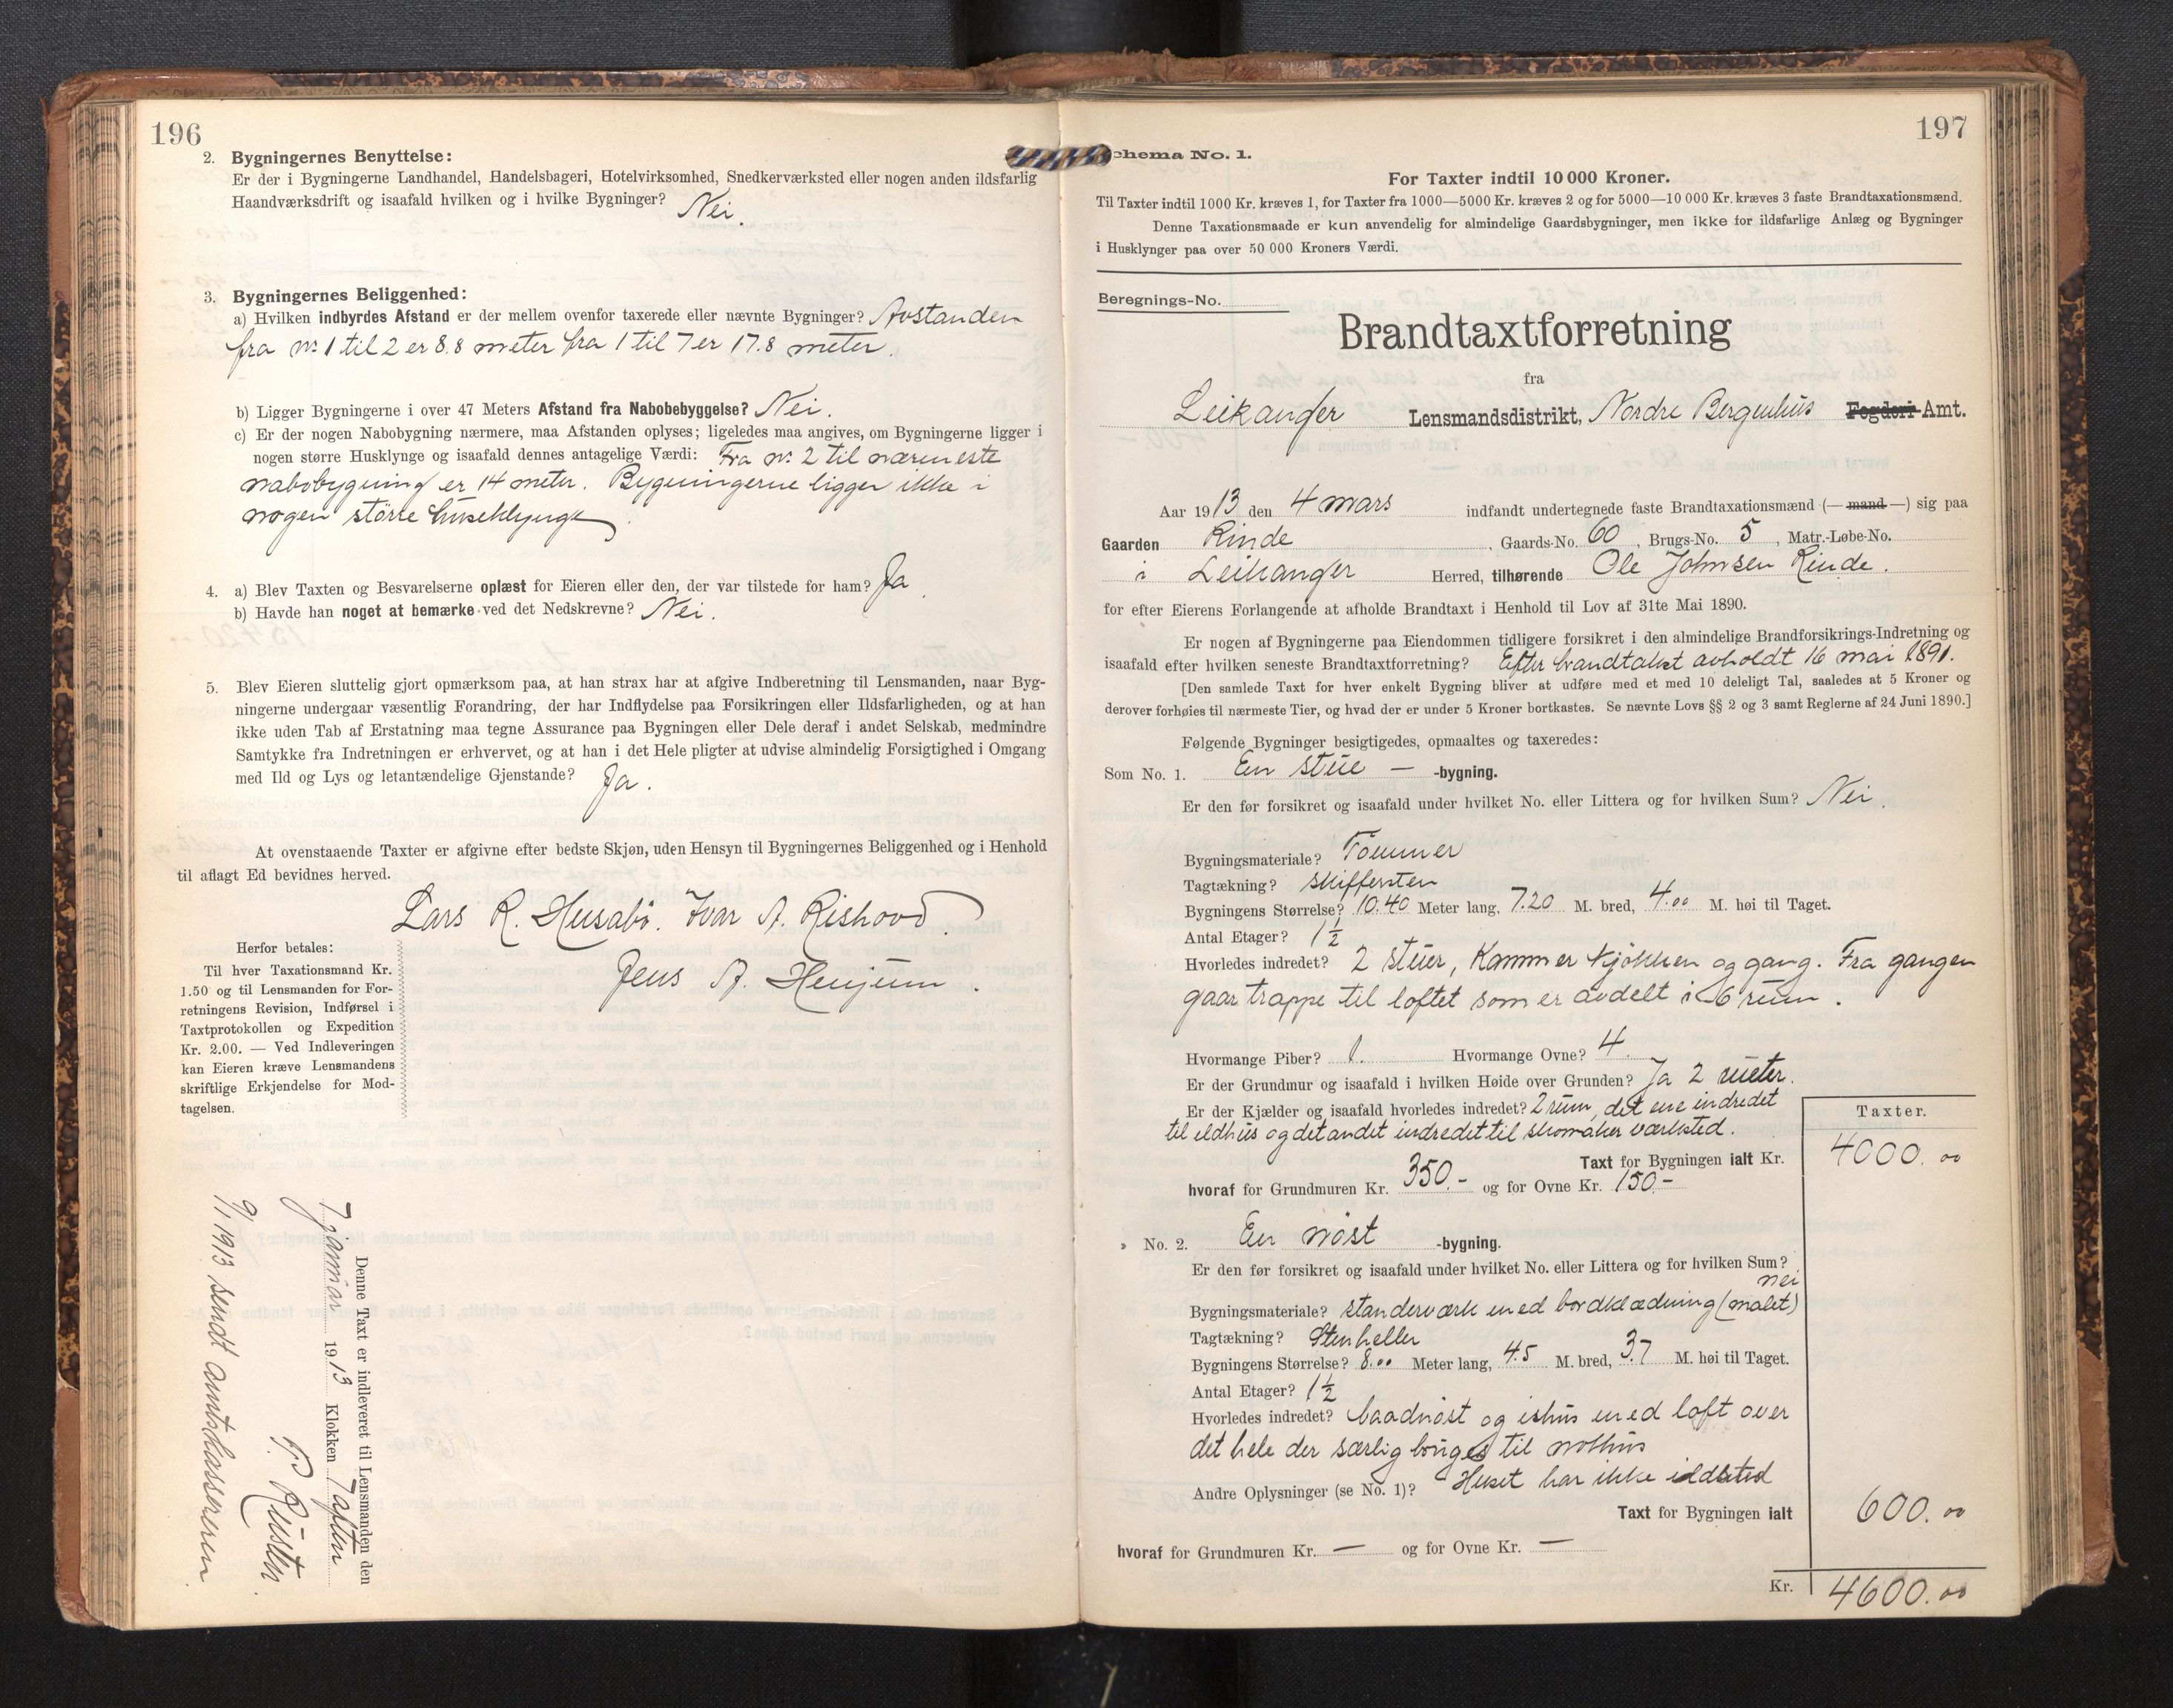 196
2. Bygningernes Benyttelse:
Er der i Bygningerne Landhandel, Handelsbageri, Hotelvirksomhed, Snedkerværksted eller nogen anden ildsfarlig
Haandværksdrift og isaafald hvilken og i hvilke Bygninger? Nei.
3. Bygningernes Beliggenhed:
a) Hvilken indbyrdes Afstand er der mellem ovenfor taxerede eller nævnte Bygninger? Avstanden
fra nr. 1 til 2 er 8.8 meter fra 1 til 7 er 17.8 meter.
b) Ligger Bygningerne i over 47 Meters Afstand fra Nabobebyggelse? Nei.
c) Er der nogen Nabobygning nærmere, maa Afstanden oplyses; ligeledes maa angives, om Bygningerne ligger i
nogen større Husklynge og isaafald dennes antagelige Værdi: Fra nr. 2 til nærmeste
nabobygning er 14 meter. Bygningerne ligger ikke i
nogen större huseklynge
4. a) Blev Taxten og Besvarelserne oplæst for Eieren eller den, der var tilstede for ham? Ja.
b) Havde han noget at bemærke ved det Nedskrevne? Nei.
5. Blev Eieren sluttelig gjort opmærksom paa, at han strax har at afgive Indberetning til Lensmanden, naar Byg-
ningerne undergaar væsentlig Forandring, der har Indflydelse paa Forsikringen eller Ildsfarligheden, og at han
ikke uden Tab af Erstatning maa tegne Assurance paa Bygningen eller Dele deraf i andet Selskab, medmindre
Samtykke fra Indretningen er erhvervet, og at han i det Hele pligter at udvise almindelig Forsigtighed i Omgang
med Ild og Lys og letantændelige Gjenstande? Ja.
At ovenstaaende Taxter er afgivne efter bedste Skjøn, uden Hensyn til Bygningernes Beliggenhed og i Henhold
til aflagt Ed bevidnes herved.
Lars R. Husabö. Ivar A. Rishovd.
Jens A. Henjum.
Herfor betales:
Til hver Taxationsmand Kr.
1.50 og til Lensmanden for For-
retningens Revision, Indførsel i
Taxtprotokollen og Expedition
Kr. 2.00. — Ved Indleveringen
kan Eieren kræve Lensmandens
skriftlige Erkjendelse for Mod-
tagelsen.
Denne Taxt er indleveret til Lensmanden den
7 januar 1913 Klokken 7 aften
9/1 1913 sendt amtskassereren
197
Schema No. 1.
For Taxter indtil 10 000 Kroner.
Til Taxter indtil 1000 Kr. kræves 1, for Taxter fra 1000—5000 Kr. kræves 2 og for 5000—10 000 Kr. kræves 3 faste Brandtaxationsmænd.
Denne Taxationsmaade er kun anvendelig for almindelige Gaardsbygninger, men ikke for ildsfarlige Anlæg og Bygninger
i Husklynger paa over 50 000 Kroners Værdi.
Beregnings-No.
Brandtaxtforretning
fra
Leikanger Lensmandsdistrikt, Nordre Bergenhus Fogderi Amt.
Aar 1913 den 4 mars indfandt undertegnede faste Brandtaxationsmænd (— mand —) sig paa
Gaarden Rinde, Gaards-No. 60, Brugs-No. 5, Matr.-Løbe-No.
i Leikanger Herred, tilhørende Ole Johnsen Rinde.
for efter Eierens Forlangende at afholde Brandtaxt i Henhold til Lov af 31te Mai 1890.
Er nogen af Bygningerne paa Eiendommen tidligere forsikret i den almindelige Brandforsikrings-Indretning og
isaafald efter hvilken seneste Brandtaxtforretning? Efter brandtakst avholdt 16 mai 1891.
[Den samlede Taxt for hver enkelt Bygning bliver at udføre med et med 10 deleligt Tal, saaledes at 5 Kroner og
derover forhøies til nærmeste Tier, og hvad der er under 5 Kroner bortkastes. Se nævnte Lovs §§ 2 og 3 samt Reglerne af 24 Juni 1890.]
Følgende Bygninger besigtigedes, opmaaltes og taxeredes:
Som No. 1. En stue — -bygning.
Er den før forsikret og isaafald under hvilket No. eller Littera og for hvilken Sum? Nei.
Bygningsmateriale? Tömmer
Tagtækning? skiffersten
Bygningens Størrelse? 10.40 Meter lang, 7.20 M. bred, 4.00 M. høi til Taget.
Antal Etager? 1 1/2
Hvorledes indredet? 2 stuer, Kammer kjökken og gang. Fra gangen
gaar trappe til loftet som er avdelt i 6 rum.
Hvormange Piber? 1. Hvormange Ovne? 4.
Er der Grundmur og isaafald i hvilken Høide over Grunden? Ja 2 meter.
Er der Kjælder og isaafald hvorledes indredet? 2 rum, det ene indredet
til ildhus og det andet indredet til skomaker værksted.
Taxter.
Taxt for Bygningen ialt Kr. 4000.00
hvoraf for Grundmuren Kr. 350.- og for Ovne Kr. 150.-
» No. 2. En nöst -bygning.
Er den før forsikret og isaafald under hvilket No. eller Littera og for hvilken Sum?
nei
Bygningsmateriale? standerværk med bordklædning (malet)
Tagtækning? Stenheller
Bygningens Størrelse? 8.00 Meter lang, 4.5 M. bred, 3.7 M. høi til Taget.
Antal Etager? 1 1/2
Hvorledes indredet? baadnöst og ishus med loft over
det hele der særlig bruges til nothus
Andre Oplysninger (se No. 1)? Huset har ikke ildsted
Taxt for Bygningen ialt 600.00
hvoraf for Grundmuren Kr. — og for Ovne Kr. —
Kr. 4600.00